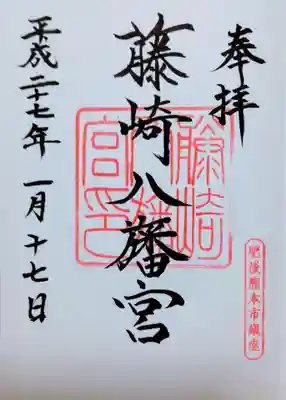 奉拝
肥後熊本市鎮座
藤崎八旛宮
藤崎
宮印
平成二十七年 一月十七日